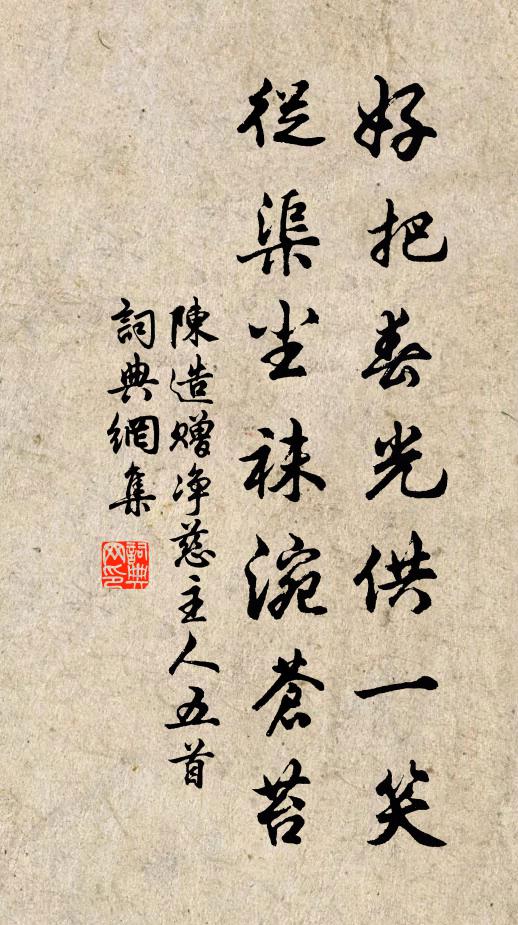 好把春光供一笑
從渠尘袜涴蒼苔
陳造贈净慈主人五首
詞典網集
詞典
网印